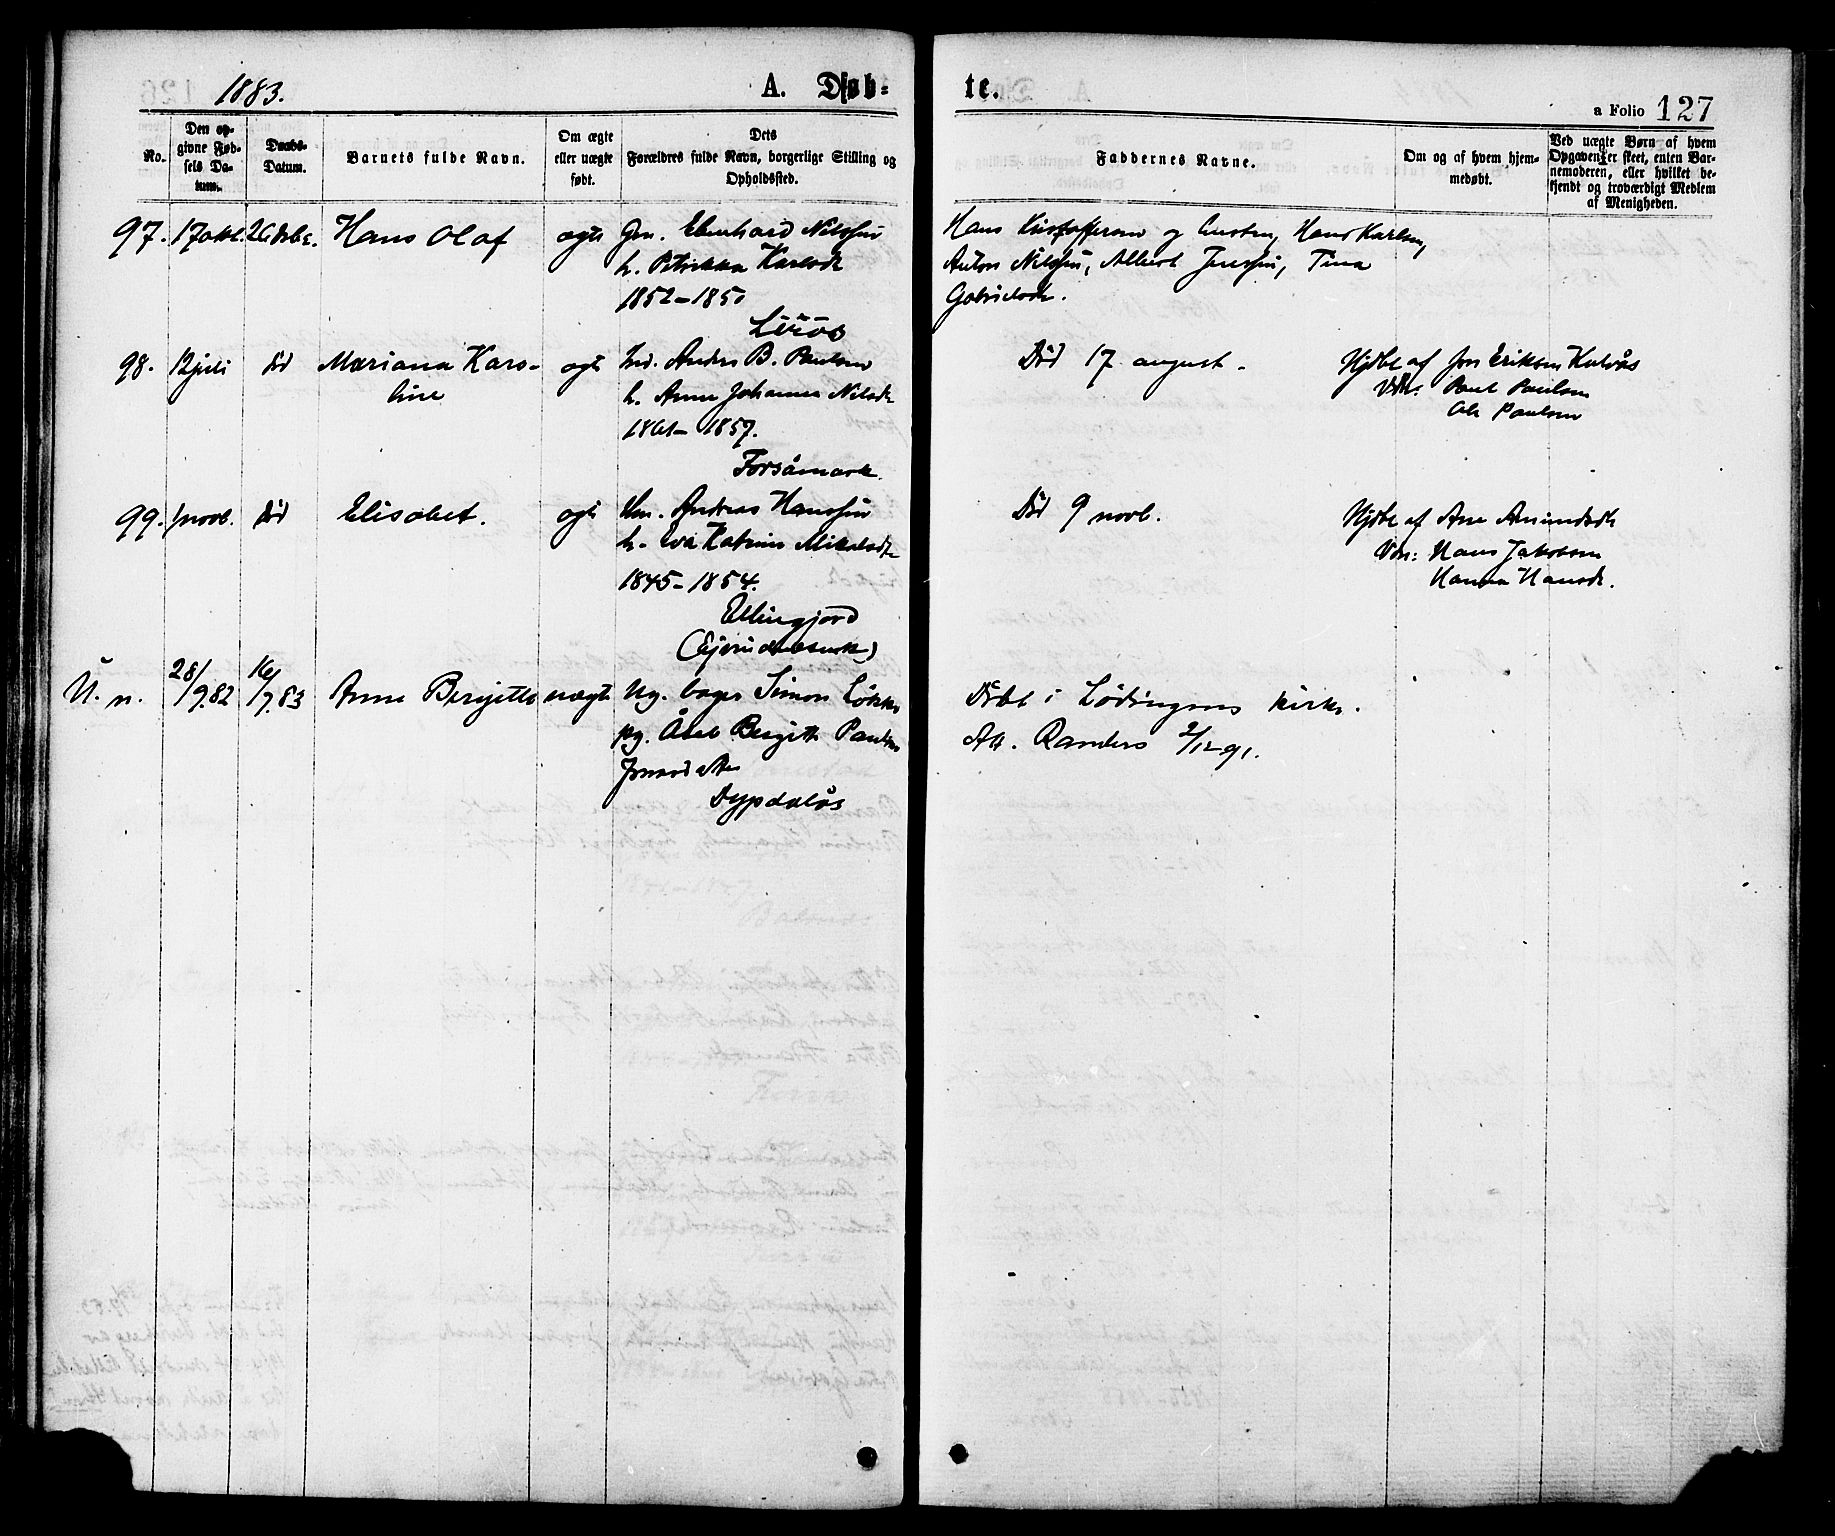 1883.
A. Døb-
te.
a Folio 127
No.
Den op-
givne Fød-
sels Da-
tum.
Daabs-
Datum.
Barnets fulde Navn.
Om ægte
eller uægte
født.
Dets
Forældres fulde Navn, borgerlige Stilling og
Opholdssted.
Faddernes Navne.
Om og af hvem hjem-
medøbt.
Ved uægte Børn af hvem
Opgaven er skeet, enten Bar-
nemoderen, eller hvilket be-
kjendt og troværdigt Medlem
af Menigheden.
97. 17 okt. 26 dsbr. Hans Olaf ægte Gm. Eberhard Nilssøn
h. Petrikka Karlsdt
1852-1850
Hans Kristoffersen og hustru, Hans Karlsen,
Anton Nilssøn, Albert Jenssøn, Tina
Gabrielsdt.
98. 12 juli død Mariana Karo-
line
ægte Ind. Anders B. Paulsen
h. Anne Johanna Nilsdt
1861-1857.
Forsåmark.
Død 17 august.
Hjdbt af Jon Eriksen Kulvås
Vdn: Paul Paulsen
Ole Paulsen
99. 1 novb. død Elisabet. ægte Hm. Andreas Hanssøn
h. Eva Katrine Mikalsdt
1845-1854.
Ellingjord
Død 9 novb.
Hjdbt af Ane Amundsdt
Vdn: Hans Jakobsen
Hanna Hansdt.
U. n. 28/9.82 16/9.83 Anne Bergitte uægte Ug. bager Simon
pg. Åsel Bergitte
Dypdalås
Døbt i Lødingens kirke.
Att. Randers 2/12 91.